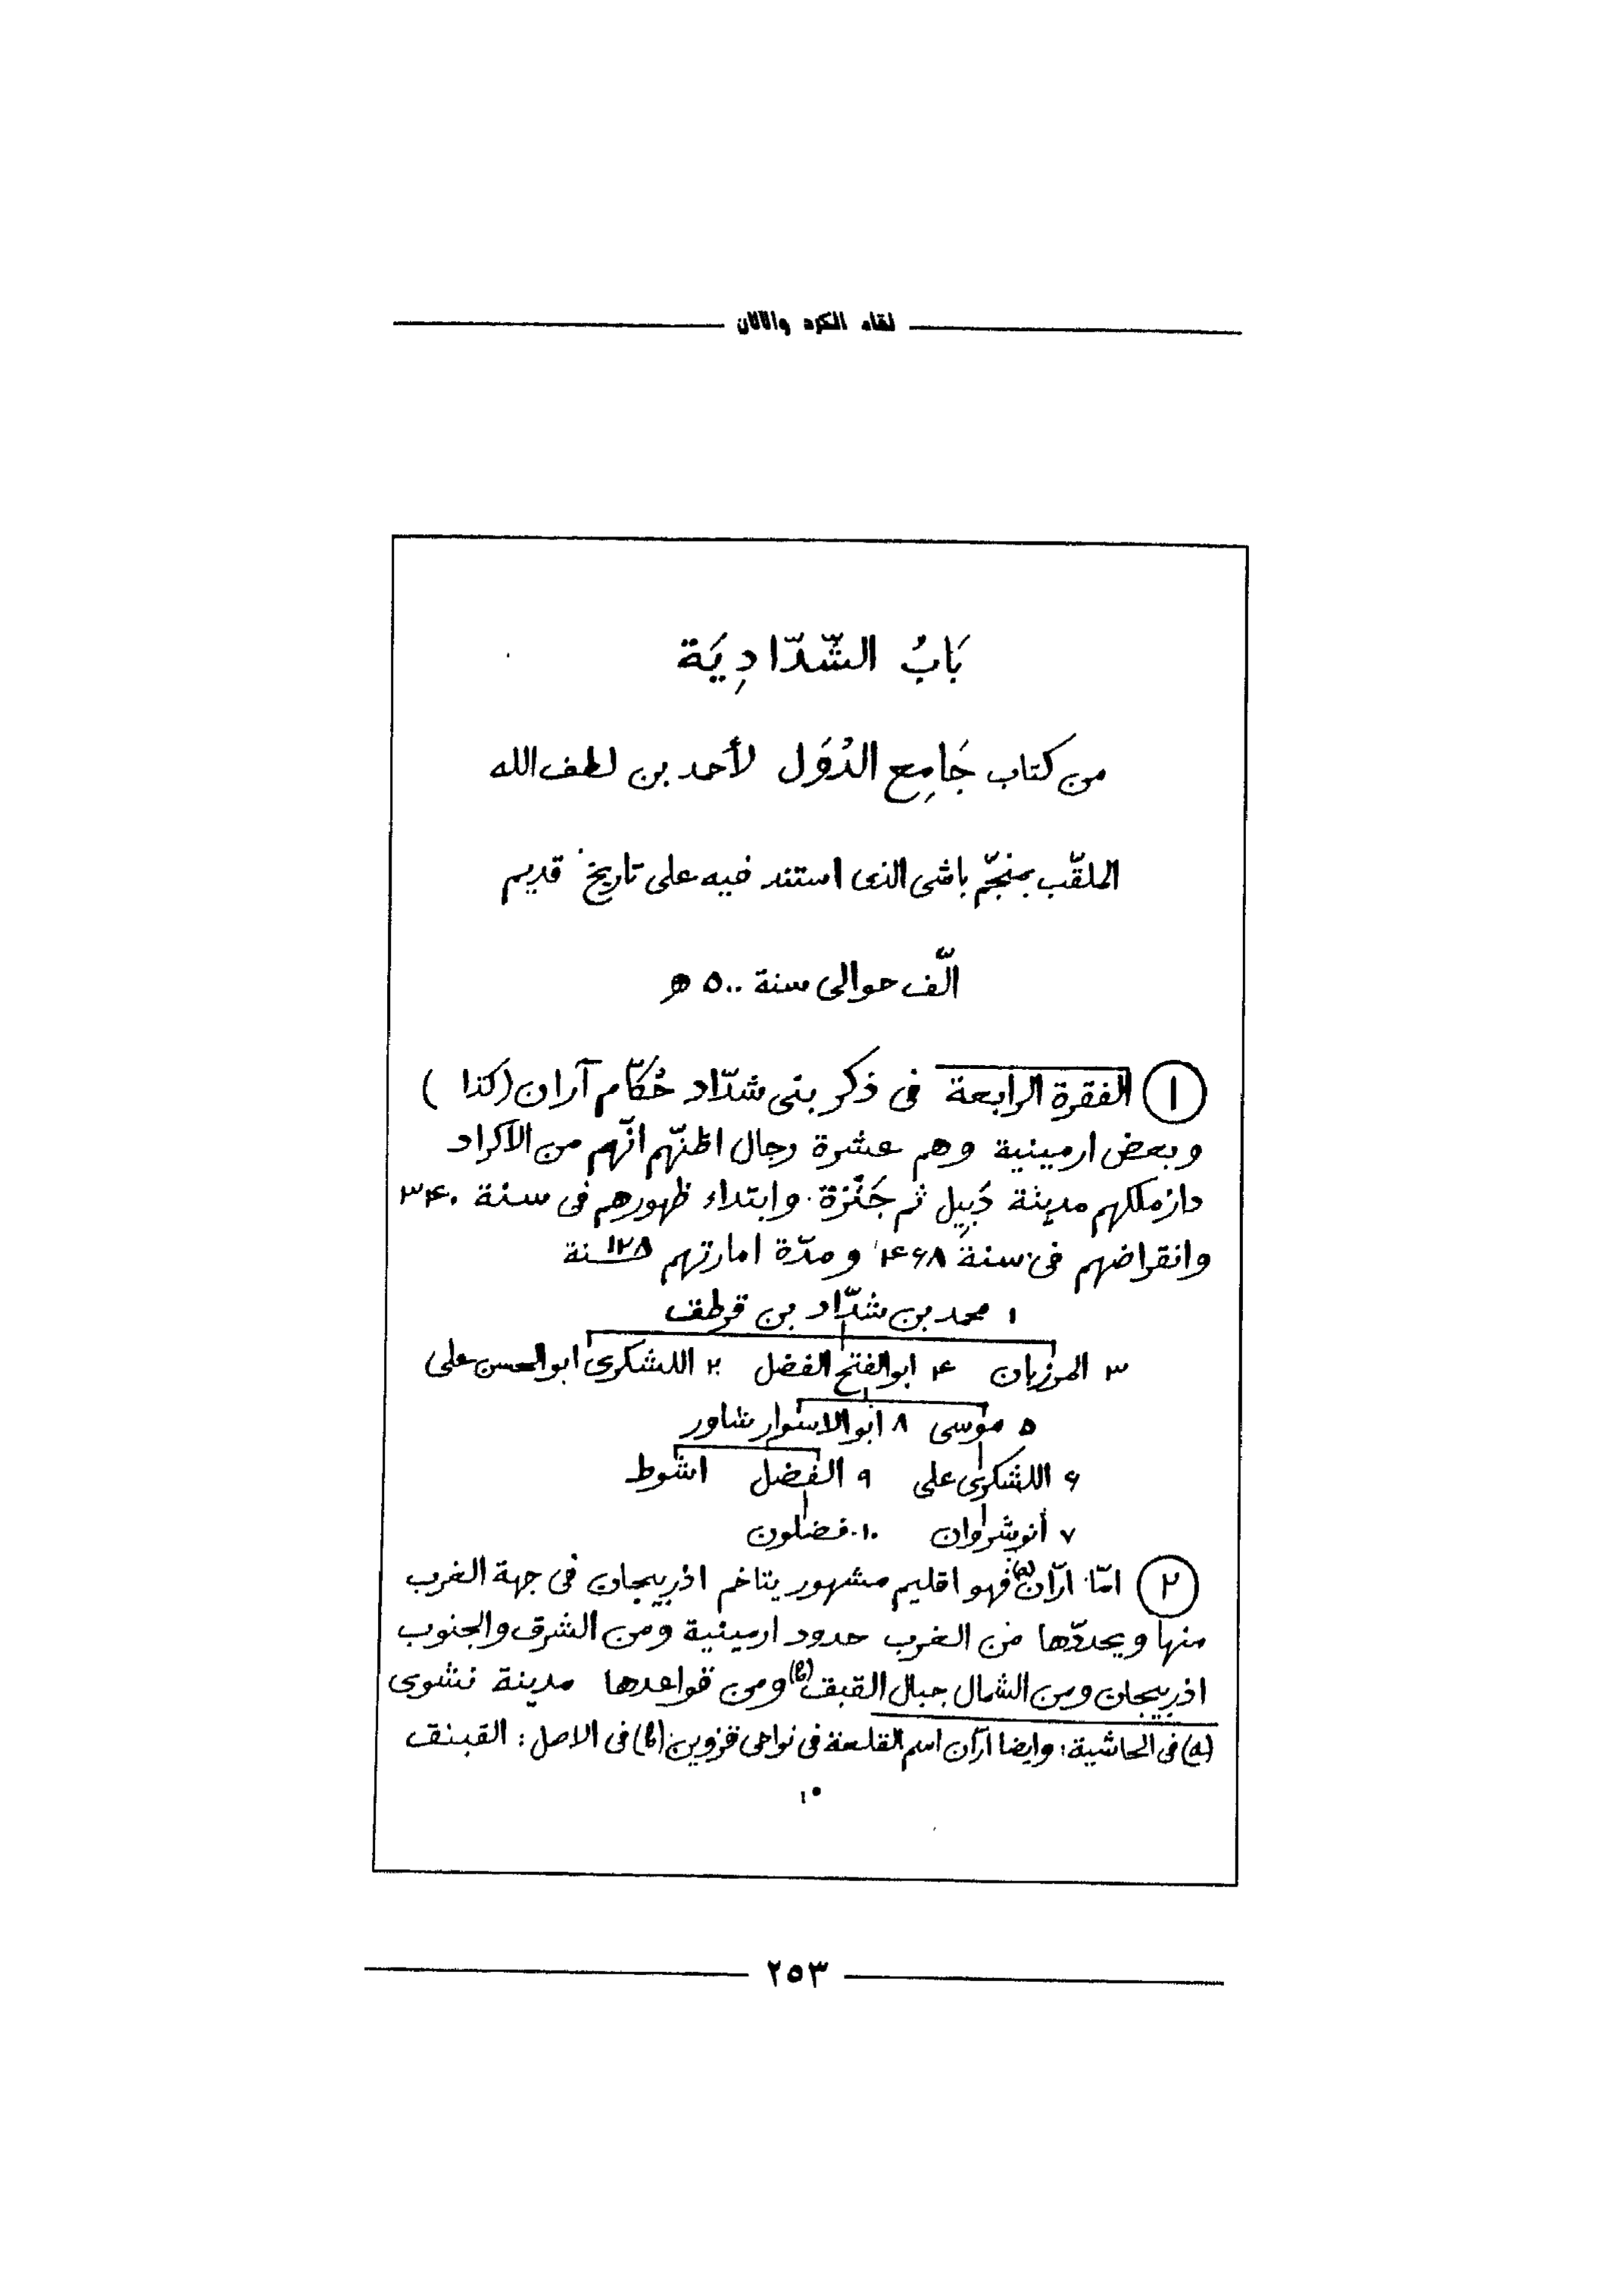 لقاء الكرد واللان
بَابُ الشَّدَّادِيَة
من كتاب جَامِع الدُوَل لأحمد بن لطف الله
الملقّب بمنجّم باشى الذى استند فيه على تاريخ قديم
الّف حوالى سنة ٥٠٠ هـ
١ الفقرة الرابعة فى ذكر بنى شدّاد حُكّام آران (كذا )
وبعض ارمينية وهم عشرة رجال اظنّهم انّهم من الاكراد
دار ملكهم مدينة دَبِيل ثم جَنْزة. وابتداء ظهورهم فى سنة ٣۴٠
وانقراضهم فى سنة ۴۶٨ ومدّة امارتهم ١٢٨ سنة
١ محمد بن شدّاد بن قرطف
٣ المرزبان ۴ ابوالفتح الفضل ٢ اللشكرى ابوالحسن على
٥ موسى ٨ ابوالاسوار شاور
۶ اللشكرى على ٩ الفضل اشوط
٧ أنوشروان ١٠ فضلون
٢ امّا ارّان(a) فهو اقليم مشهور يتاخم اذربيجان فى جهة الغرب
منها ويحدّدها من الغرب حدود ارمينية ومن الشرق والجنوب
اذربيجان ومن الشمال جبال القبق(b) ومن قواعدها مدينة نشوى
(a) فى الحاشية: وايضا ارّان اسم القلعة فى نواحى قزوين (b) فى الاصل: القبنق
٢٥٣